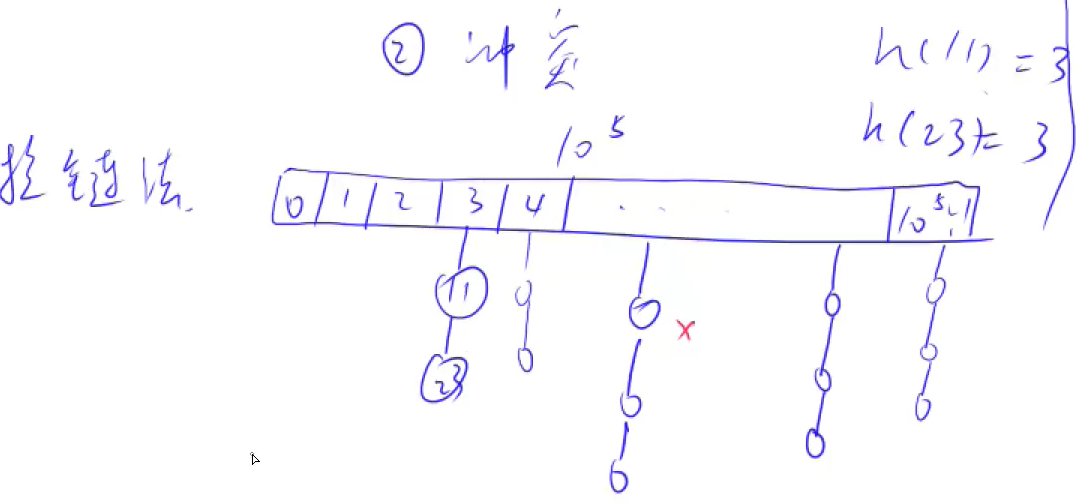 ② 冲突
h(11) = 3
h(23) = 3
10^5
拉链法.
0 1 2 3 4 ... 10^5-1
11
23
x